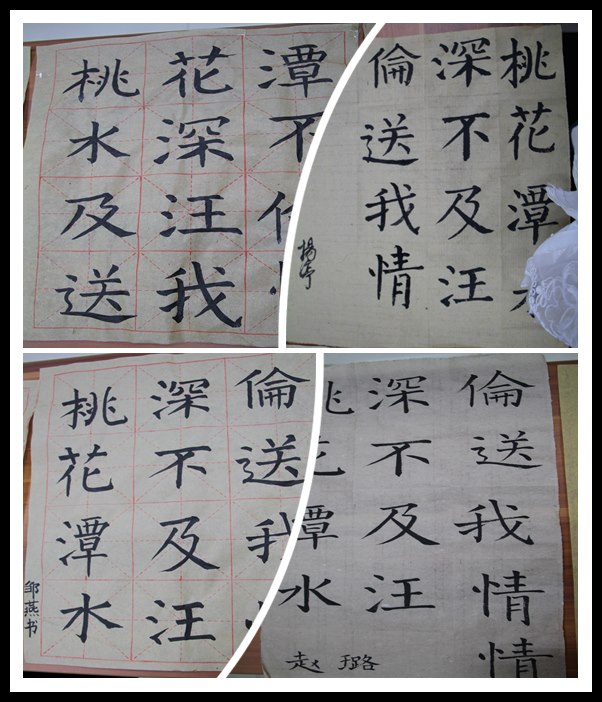 桃花潭
水深不
及汪
送我
桃花潭
深不及汪
倫送我情
桃花潭水
深不及汪
倫送我
邹燕书
潭水
深不及汪
倫送我情情
赵璐